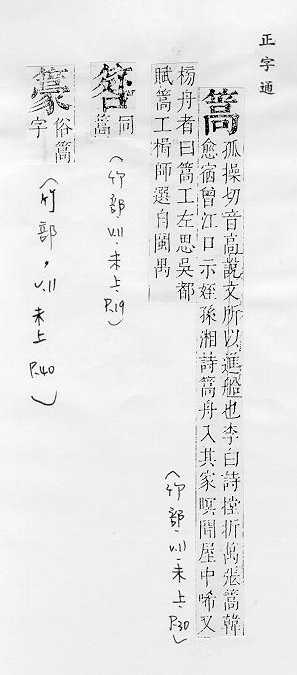 正字通
篙
孤操切音高說文所以進船也李白詩撑折萬張篙韓
愈宿曾江口示姪孫湘詩篙舟入其家暝聞屋中唏又
榜舟者曰篙工左思吳都
賦篙工楫師選自閩禺
(竹部·v.11·未上·P.30)
同
篙
(竹部·v.11·未上·P.19)
俗篙
字
(竹部,v.11 未上 P.40)